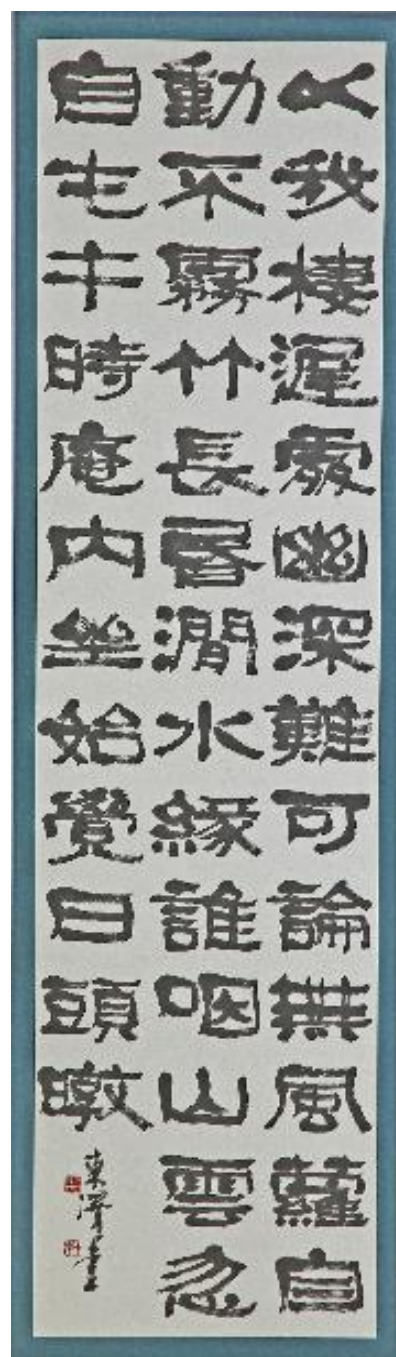 以我棲遲處幽深難可論無風蘿自
動不霧竹長昬澗水緣誰咽山雲忽
自屯午時庵內坐始覺日頭暾
東 書